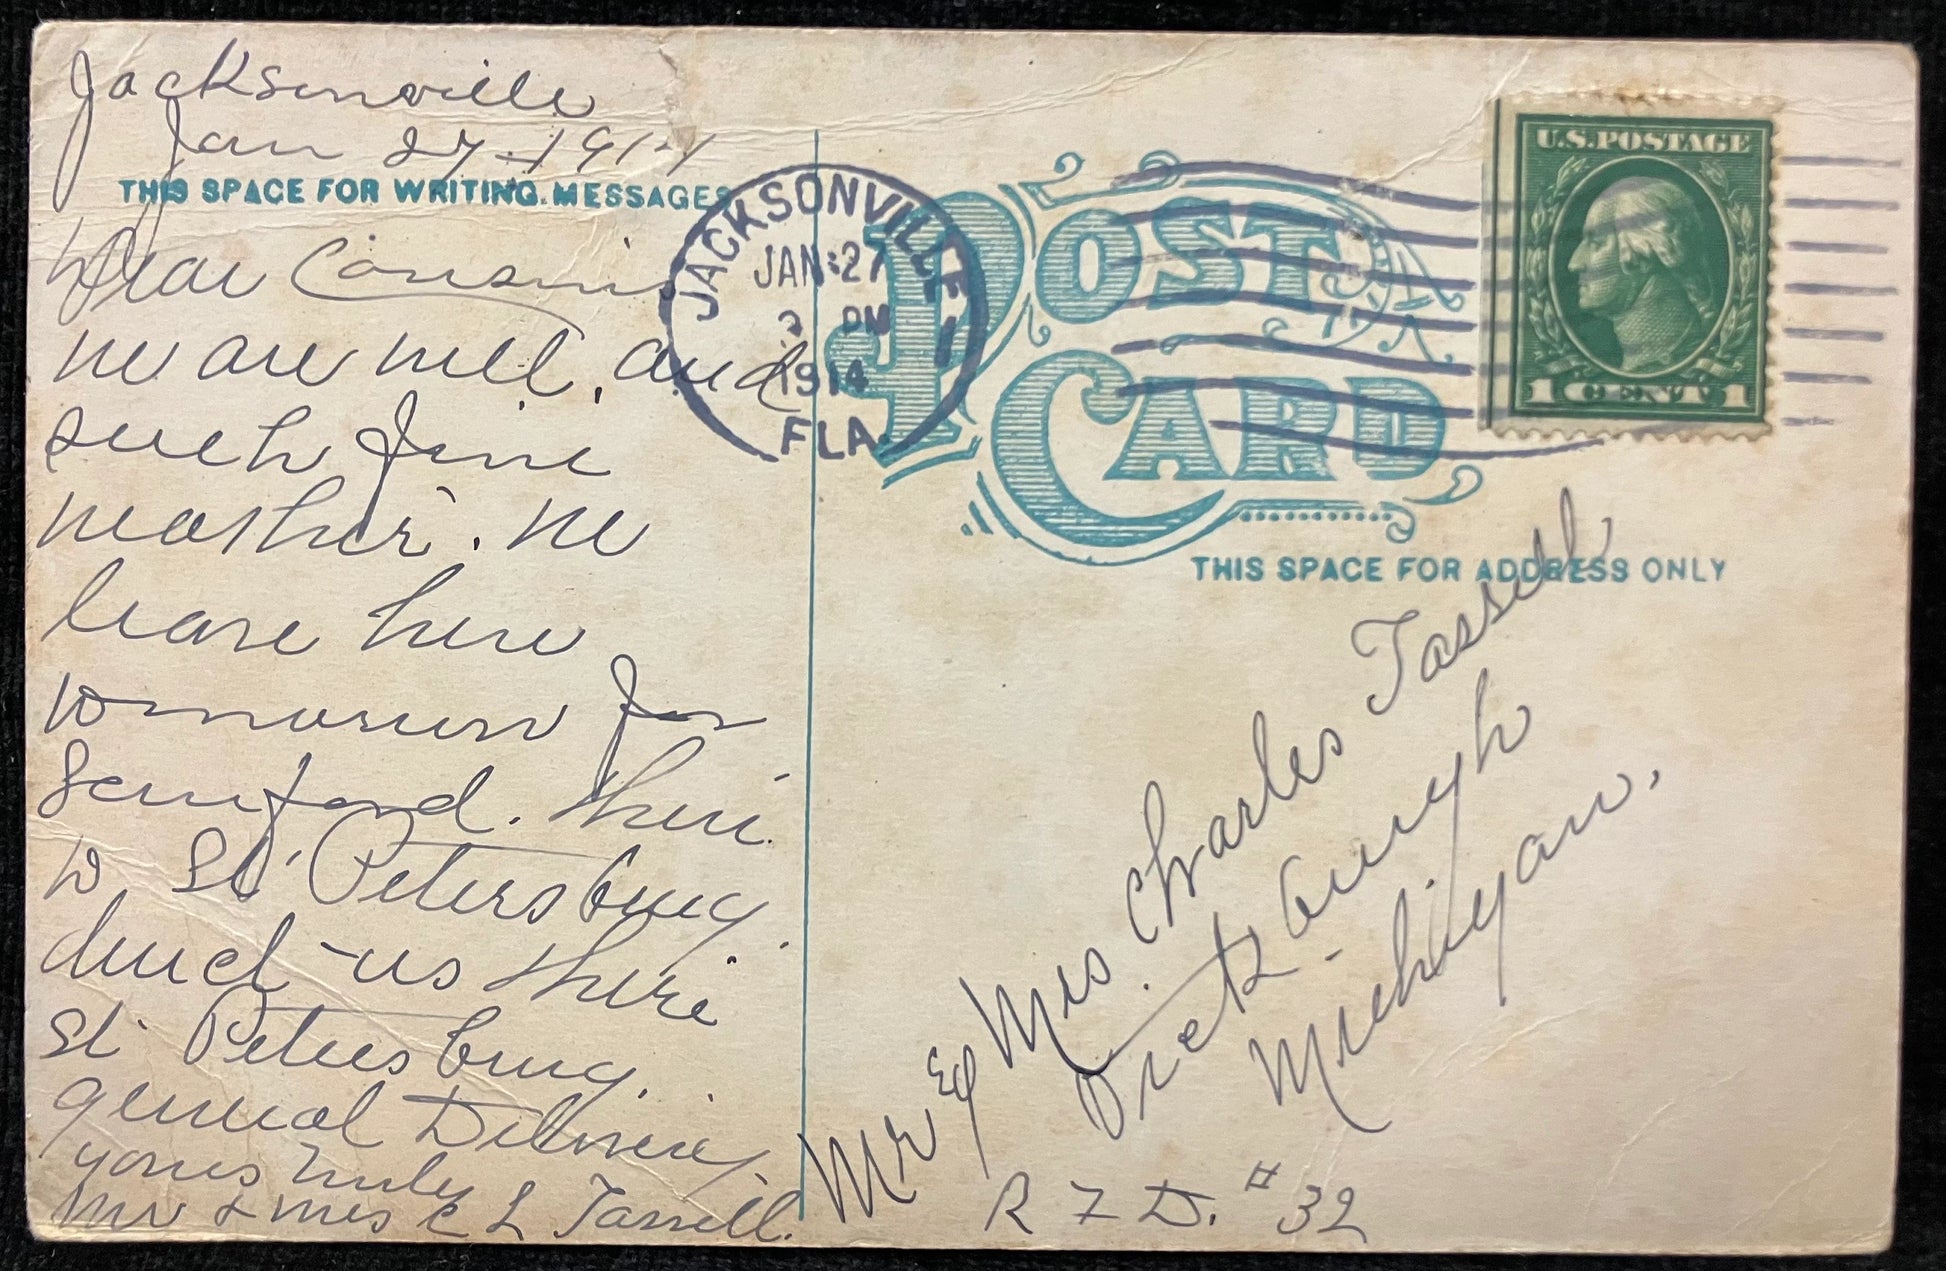 Jacksonville
Jan 27-1914
THIS SPACE FOR WRITING MESSAGES
Dear Cousins
We are well, and
such fine
weather. We
leave here
tomorrow for
Sanford. then
to St Petersburg
direct us there
St Petersburg.
General Delivery.
yours Truly
Mr & Mrs C L Tassell.
JACKSONVILLE
JAN 27
PM
1914
FLA.
POST CARD
U.S. POSTAGE
1 CENT 1
THIS SPACE FOR ADDRESS ONLY
Mr & Mrs. Charles Tassell
Vicksburgh
Michigan.
R F D. # 32